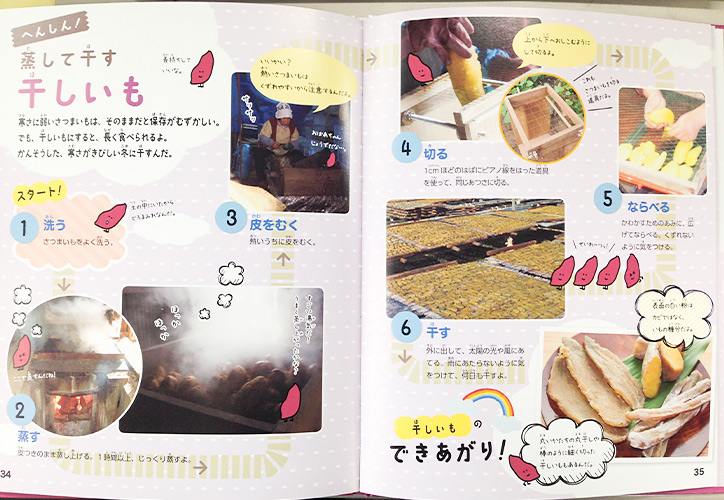 へんしん!
蒸して干す
干しいも
長持ちして
いいな。
寒さに弱いさつまいもは、そのままだと保存がむずかしい。
でも、干しいもにすると、長く食べられるよ。
かんそうした、寒さがきびしい冬に干すんだ。
スタート!
1 洗う
さつまいもをよく洗う。
土の中にいたから
どろまみれなんだ。
2
蒸す
皮つきのまま蒸し上げる。1時間以上、じっくり蒸すよ。
ほっか
ほっか
いいかい?
熱いさつまいもは
くずれやすいから注意するんだよ。
おばあちゃん
じょうずだな〜。
3 皮をむく
熱いうちに皮をむく。
34
上から下へおしこむように
して切るよ。
これも
さつまいもを切る
道具だよ。
4 切る
1cmほどのはばにピアノ線をはった道具
を使って、同じあつさに切る。
5
ならべる
かわかすためのあみに、広
げてならべる。くずれない
ように気をつける。
6 干す
外に出して、太陽の光や風にあ
てる。雨にあたらないように気
をつけて、何日も干すよ。
表面の白い粉は
カビではなく、
いもの糖分だよ。
干しいもの
できあがり!
丸いかたちの丸干しや
棒のように細く切った
干しいももあるんだ。
35